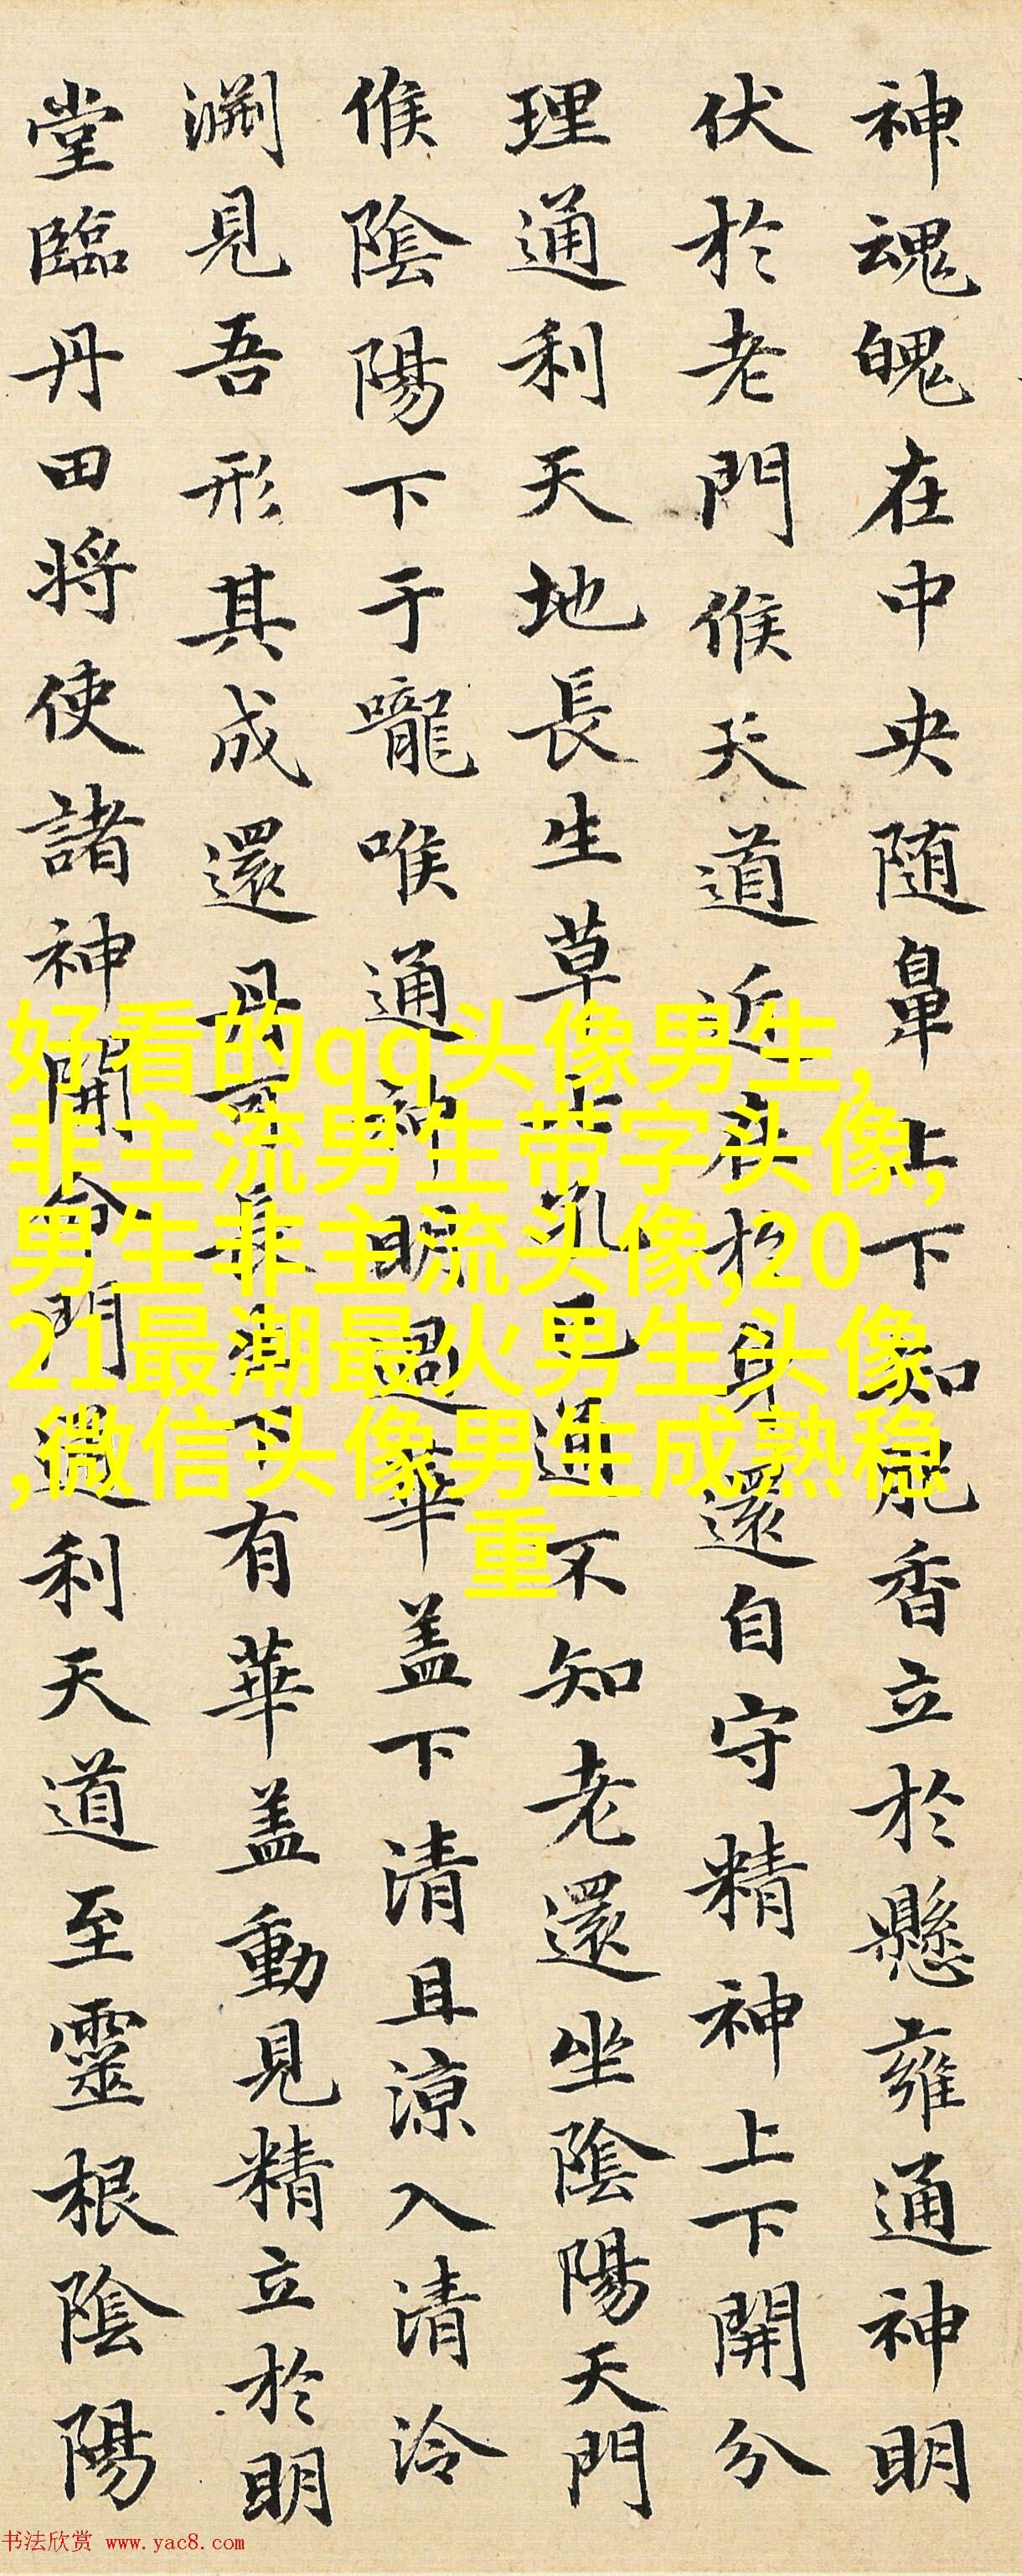 神魂魄在中央随鼻上下知肥香立於懸雍通神明
伏於老門候天道近在於身還自守精神上下開分
理通利天地長生草七孔已通不知老還坐陰陽天門
候陰陽下于嚨喉通神明過華盖下清且涼入清泠
淵見吾形其成還丹可長生下有華盖動見精立於明
堂臨丹田将使諸神開命門通利天道至靈根陰陽
好看的qq头像男生,
非主流男生带字头像,
男生非主流头像,20
21最潮最火男生头像
,微信头像男生成熟稳
重
书法欣赏 www.yac8.com